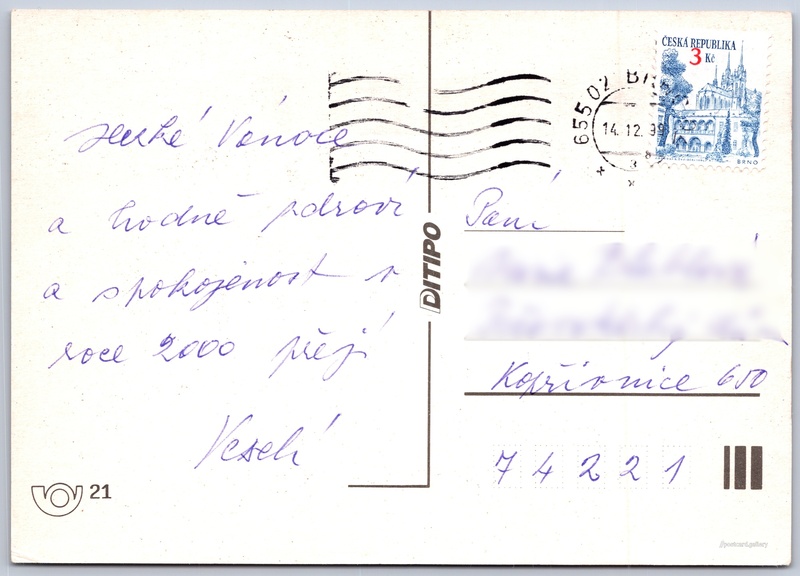 Hezké Vánoce
a hodně zdraví
a spokojenost v
roce 2000 přejí
Veselí
21
DITIPO
655 02 BR
14. 12. 99
8
ČESKÁ REPUBLIKA
3 Kč
BRNO
Paní
Kopřivnice 650
74221
//postcard.gallery